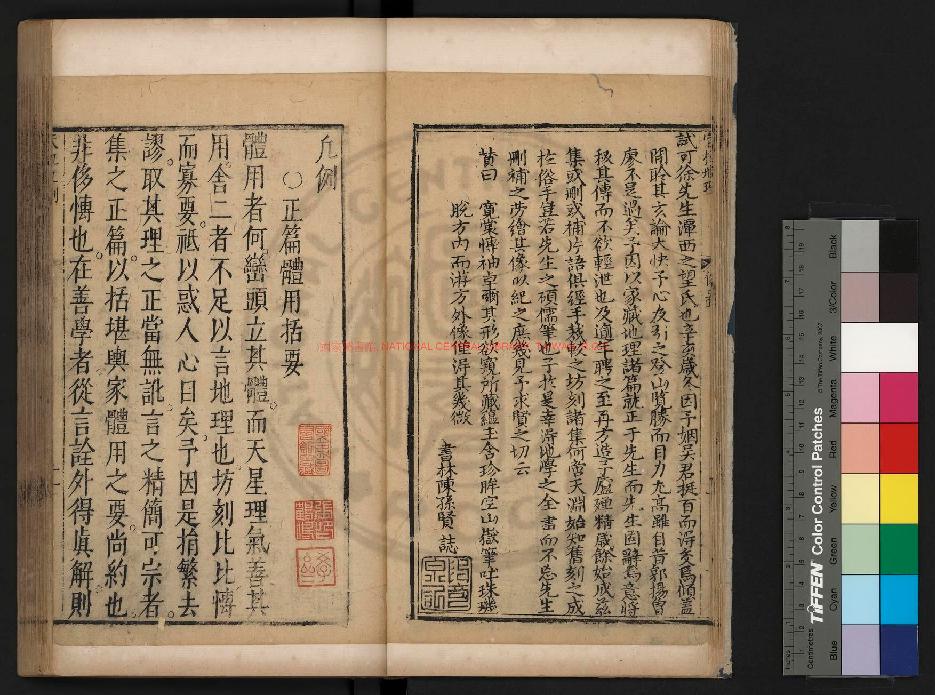 試可徐先生潭西之望氏也辛亥歲冬因予姻吳君挺百而得交焉傾蓋
間聆其玄論大快予心及引之登山覽勝而目力尤高雖自昔郭楊曾
廖不是過矣予因以家藏地理諸篇就正于先生而先生固辭焉意將
秘其傳而不欲輕泄也及適年聘之至再方造予廬殫精歲餘始成茲
集或刪或補片語俱經手裁較之坊刻諸集何啻天淵始知舊刻之成
於俗手豈若先生之碩儒筆也予於是幸得地學之全書而不忘先生
刪補之勞繪其像以紀之庶幾見予求賢之切云
贊曰 寬裳博袖卓爾其形欲窺所藏蘊玉含珍眸空山嶽筆吐珠璣
脫方內而游方外像僅得其幾微
書林陳孫賢 誌
凡例
○正篇體用括要
體用者何巒頭立其體而天星理氣善其
用舍二者不足以言地理也坊刻比比博
而寡要祗以惑人心目矣予因是捐繁去
謬取其理之正當無訛言之精簡可宗者
集之正篇以括堪輿家體用之要尚約也
非侈博也在善學者從言詮外得真解則
國家圖書館 NATIONAL CENTRAL LIBRARY, TAIWAN, R.O.C.
TIFFEN Color Control Patches
© The Tiffen Company, 2007
Centimetres
Inches
Blue
Cyan
Green
Yellow
Red
Magenta
White
3/Color
Black